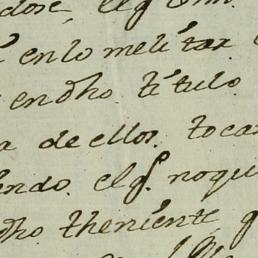 en lo melitar
en dho titulo
a de ellos. toca
endo. el q̃. no qu
dho theniente q